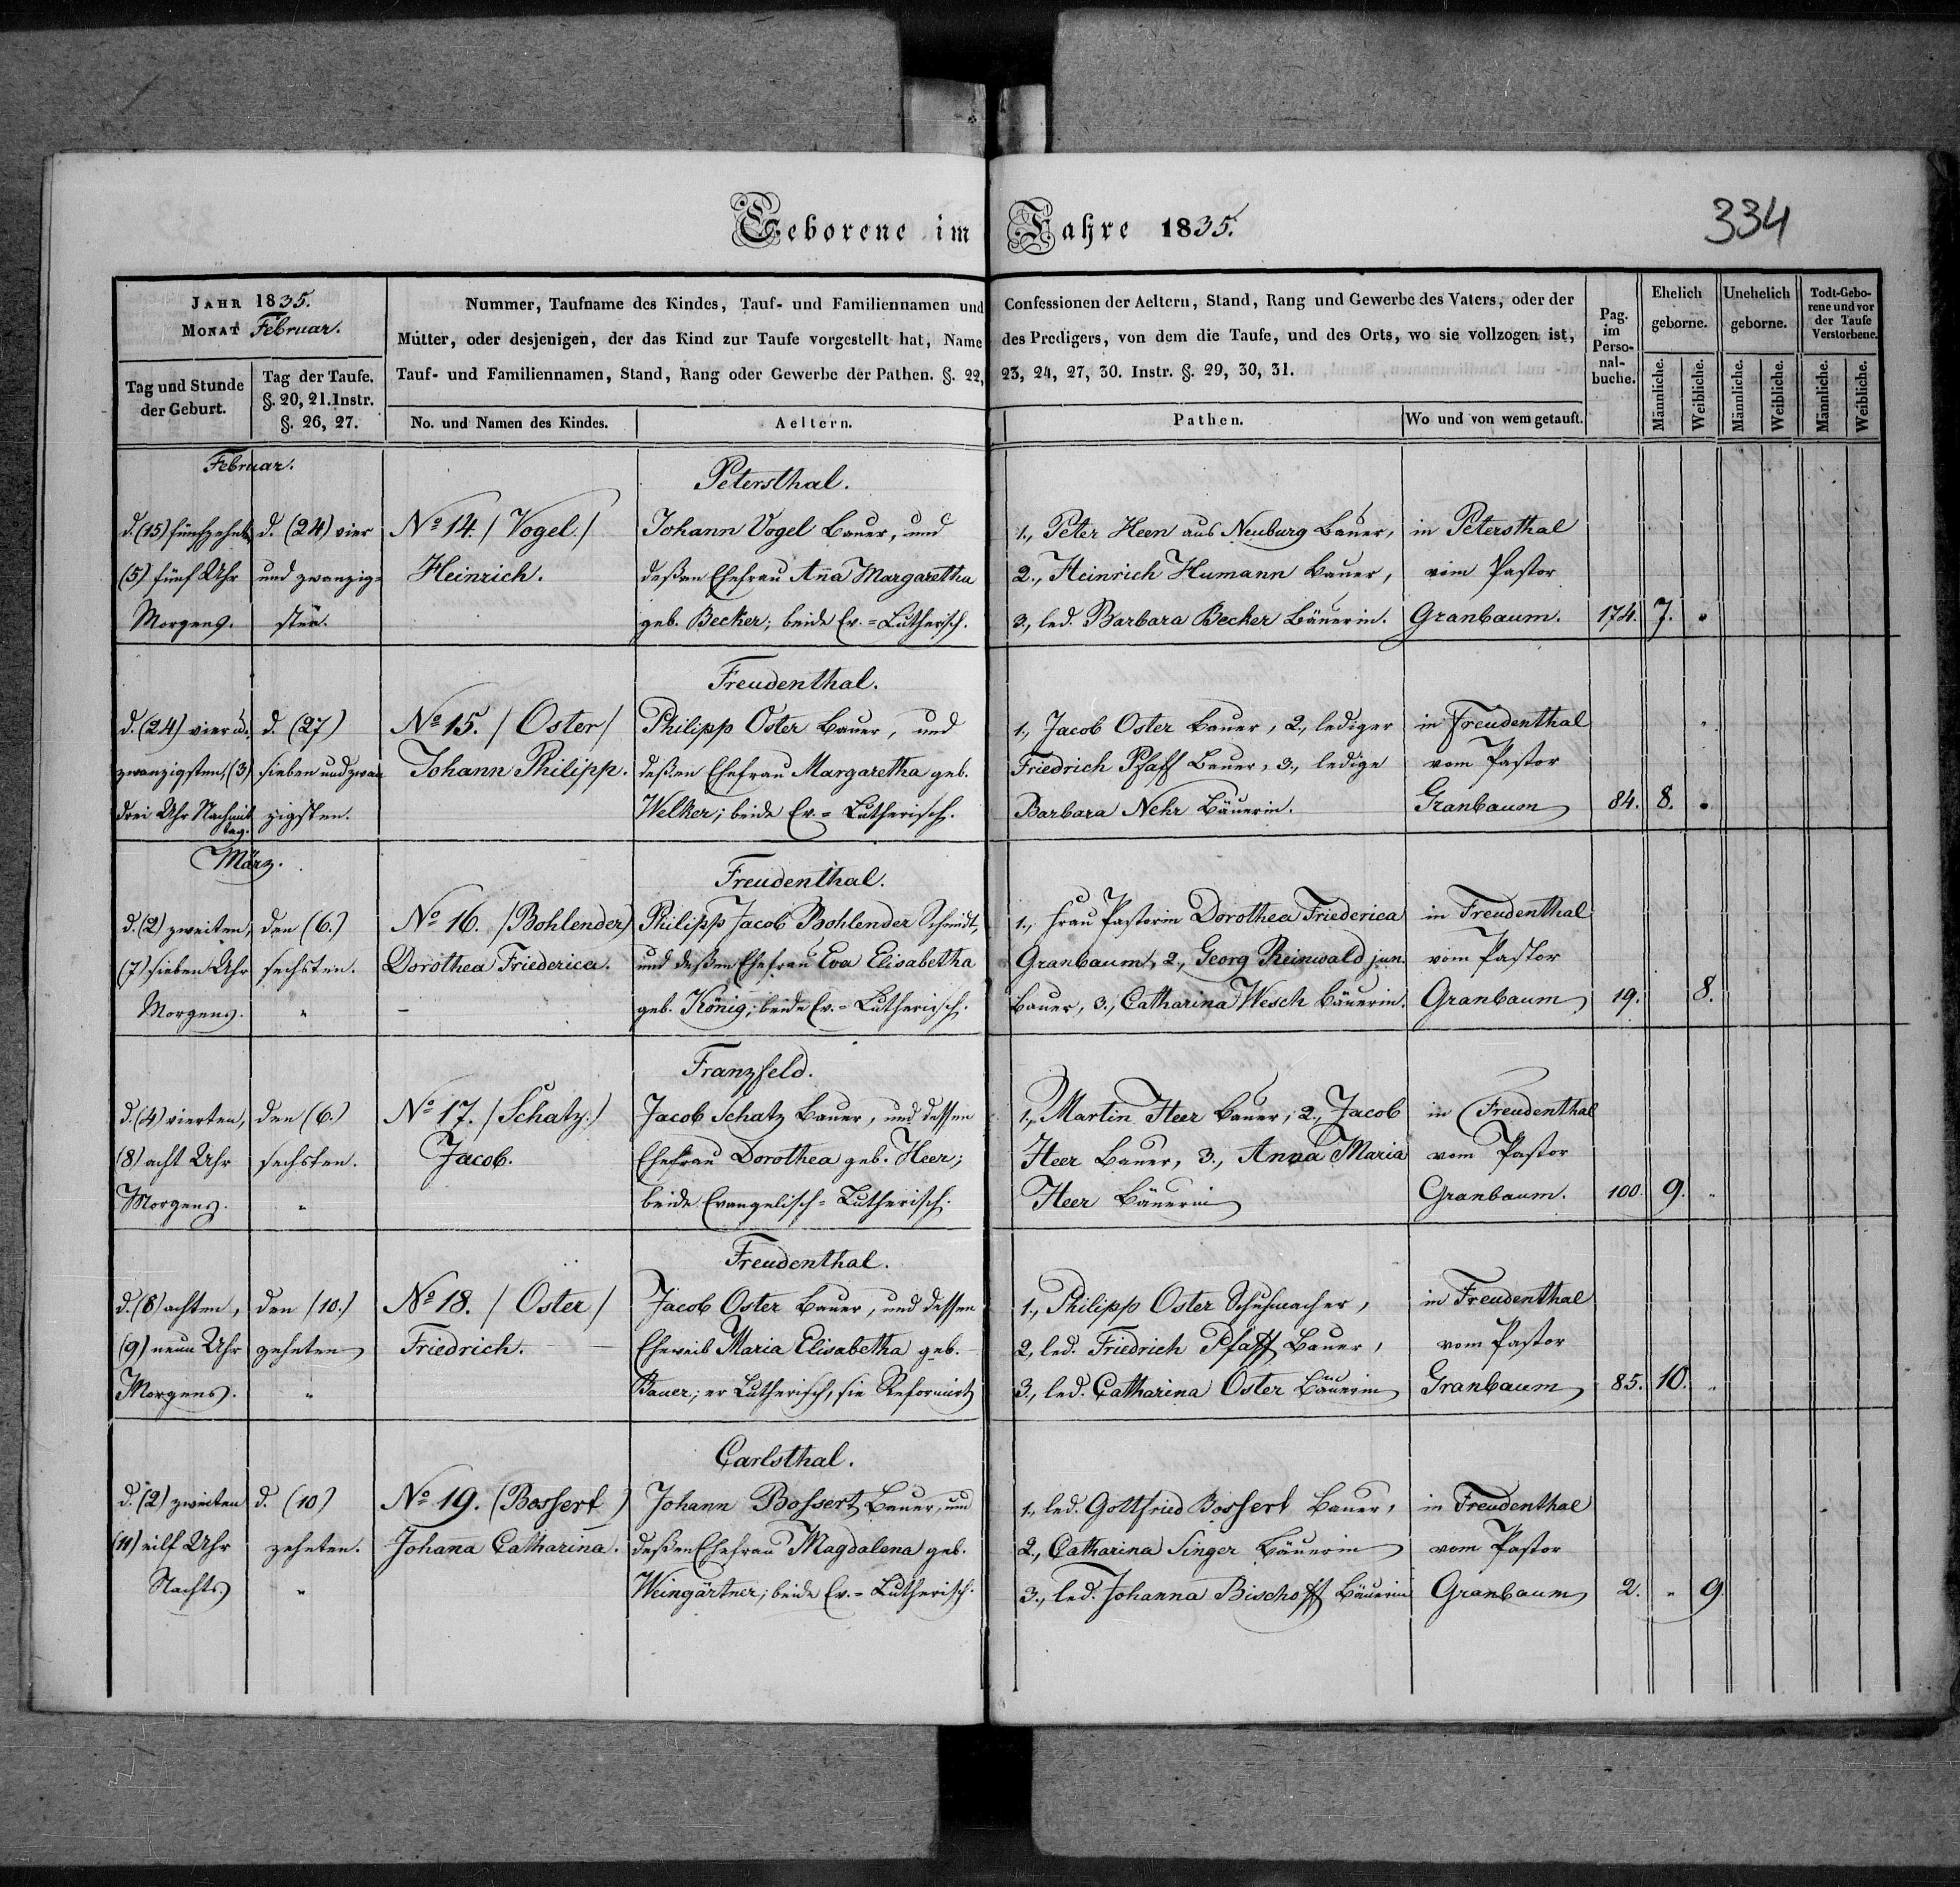 Geborene im Jahre 1835.
334
JAHR 1835.
MONAT Februar.
Tag und Stunde
der Geburt.
Tag der Taufe.
§. 20, 21. Instr.
§. 26, 27.
Nummer, Taufname des Kindes, Tauf- und Familiennamen und
Mutter, oder desjenigen, der das Kind zur Taufe vorgestellt hat, Name
Tauf- und Familiennamen, Stand, Rang oder Gewerbe der Pathen. §. 22,
No. und Namen des Kindes.
Aeltern.
Confessionen der Aeltern, Stand, Rang und Gewerbe des Vaters, oder der
des Predigers, von dem die Taufe, und des Orts, wo sie vollzogen ist,
23, 24, 27, 30. Instr. §. 29, 30, 31.
Pathen.
Wo und von wem getauft.
Pag.
im
Perso-
nal-
buche.
Ehelich
geborne.
Unehelich
geborne.
Todt-Gebo-
rene und vor
der Taufe
Verstorbene.
Männliche.
Weibliche.
Männliche.
Weibliche.
Männliche.
Weibliche.
Februar.
d. (15) fünfzehnten
(5) fünf Uhr
Morgens.
d. (24) vier
und zwanzig-
sten.
No 14. / Vogel /
Heinrich.
Petersthal.
Johann Vogel Bauer, und
deßen Ehefrau Anna Margaretha
geb. Becker; beide Ev.=Lutherisch.
1., Peter Heen aus Neuburg Bauer,
2., Heinrich Humann Bauer,
3., led. Barbara Becker Bäuerin.
in Petersthal
vom Pastor
Granbaum.
174. 7. "
d. (24) vier u.
zwanzigsten, (3)
drei Uhr Nachmit
tag.
d. (27)
sieben und zwan
zigsten.
No 15. / Oster /
Johann Philipp.
Freudenthal.
Philipp Oster Bauer, und
deßen Ehefrau Margaretha geb.
Welker; beide Ev.=Lutherisch.
1., Jacob Oster Bauer, 2., lediger
Friedrich Pfaff Bauer, 3., ledige
Barbara Nehr Bäuerin.
in Freudenthal
vom Pastor
Granbaum
84. 8. "
März.
d. (2) zweiten,
(7) sieben Uhr
Morgens.
den (6.)
sechsten.
"
No 16. / Bohlender)
Dorothea Friederica.
Freudenthal.
Philipp Jacob Bohlender Schmidt,
und deßen Ehefrau Eva Elisabetha
geb. König; beide Ev.=Lutherisch.
1., Frau Pastorin Dorothea Friederica
Granbaum, 2., Georg Reinwald jun.
Bauer, 3., Catharina Wesch Bäuerin.
in Freudenthal
vom Pastor
Granbaum
19. 8.
d. (4) vierten,
(8) acht Uhr
Morgens.
den (6.)
sechsten.
"
No 17. / Schatz.)
Jacob.
Franzfeld.
Jacob Schatz Bauer, und dessen
Ehefrau Dorothea geb. Heer;
beide Evangelisch=Lutherisch.
1., Martin Heer Bauer; 2., Jacob
Heer Bauer, 3., Anna Maria
Heer Bäuerin
in Freudenthal
vom Pastor
Granbaum.
100. 9. "
d. (8) achten,
(9) neun Uhr
Morgens.
den (10.)
zehnten
"
No 18. / Oster /
Friedrich.
Freudenthal.
Jacob Oster Bauer, und dessen
Eheweib Maria Elisabetha geb.
Bauer; er Lutherisch, sie Reformirt
1., Philipp Oster Schuhmacher,
2., led. Friedrich Pfaff Bauer,
3., led. Catharina Oster Bäuerin
in Freudenthal
vom Pastor
Granbaum
85. 10. "
d. (2) zweiten
(11) eilf Uhr
Nachts.
d. (10)
zehnten.
"
No 19. (Bossert)
Johanna Catharina.
Carlsthal.
Johann Bossert Bauer, und
deßen Ehefrau Magdalena geb.
Weingärtner; beide Ev.=Lutherisch.
1., led. Gottfried Bossert Bauer,
2., Catharina Singer Bäuerin
3., led. Johanna Bischoff Bäuerin
in Freudenthal
vom Pastor
Granbaum
2. " 9.